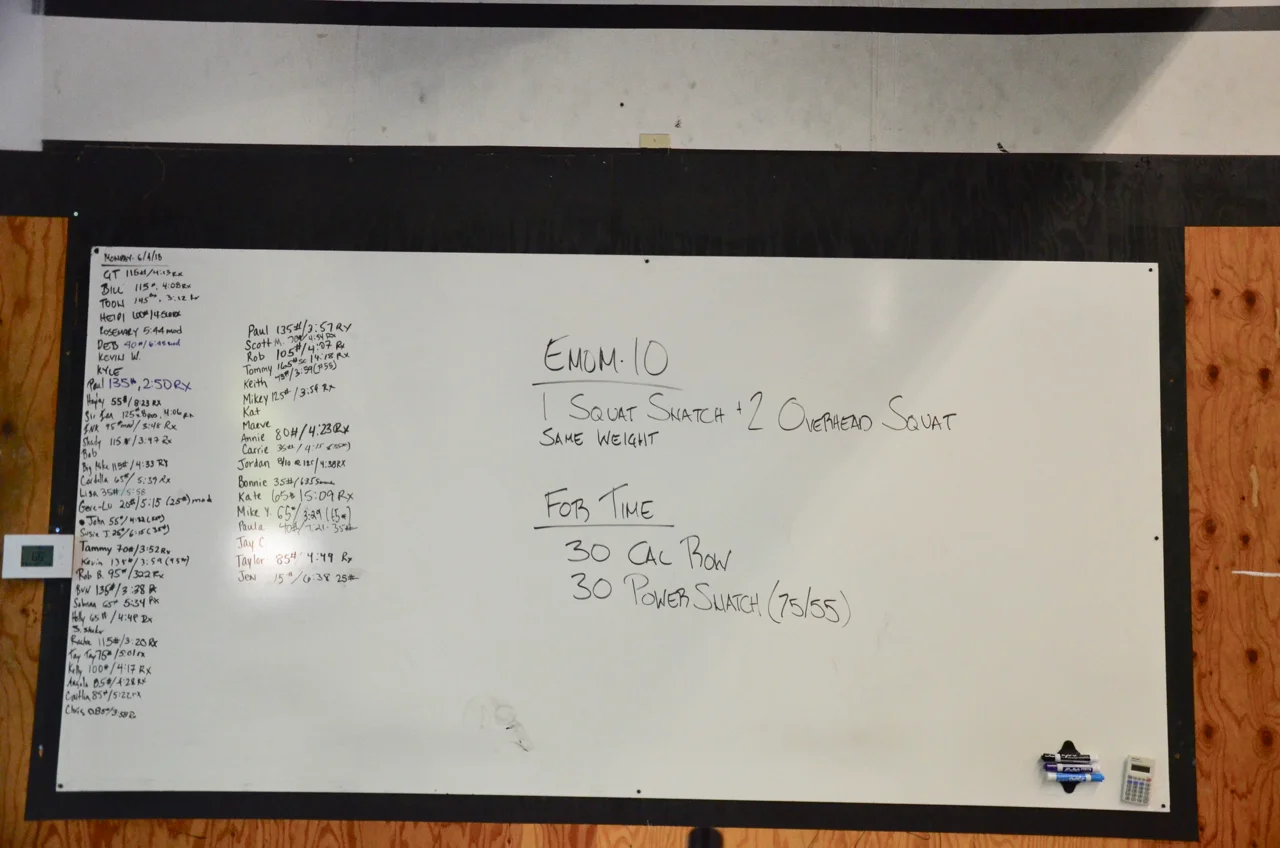 MONDAY 6/4/18
GT 115#/4:13 Rx
BILL 115#, 4:08 Rx
TOON 145#, 3:12 Rx
HEIDI 100#/
ROSEMARY 5:44 mod
DEB 40#/
KEVIN W.
KYLE
Paul 135#, 2:50 RX
Hayley 55#/8:23 RX
4:06 Rx
95# mod/3:48 Rx
Shady 115#/3:47 Rx
Bob
Big Mike 115#/4:33 RX
Cordelia 65#/5:39 Rx
Lisa 35#/5:58
Geri-Lu 26#/5:15 (25#) mod
John 55#/4:32
Susie J. 25#/6:15 (35#)
Tammy 70#/3:52 Rx
Kevin 135#/3:59 (95#)
Rob B. 95#/322 Rx
135#/3:38 Rx
65# 5:34 Rx
Holly 65#/4:48 Rx
115#/3:20 Rx
Tay Tay 75#/5:01 rx
Kelly 100#/4:17 Rx
Angela 85#/4:28 RX
Caitlin 85#/5:22 rx
Chris
Paul 135#/3:57 RX
Scott M.
Rob 105#/4:07 Rx
Tommy 165# sc 14:18 Rx
Keith 75#/3:59 (#55)
Mikey 125#/3:54 RX
Kat
Maeve
Annie 80#/4:23 RX
Carrie 35#/4:15
Jordan 8/10 @ 135/4:38 RX
Bonnie 35#/
Kate 65# 15:09 RX
Mike Y. 65#/3:29 (65#)
Paula 40#/7:21 35#
Jay C
Taylor 85# 4:49 Rx
Jen 15#/6:38 25#
EMOM·10
1 SQUAT SNATCH + 2 OVERHEAD SQUAT
SAME WEIGHT
FOR TIME
30 CAL ROW
30 POWER SNATCH (75/55)